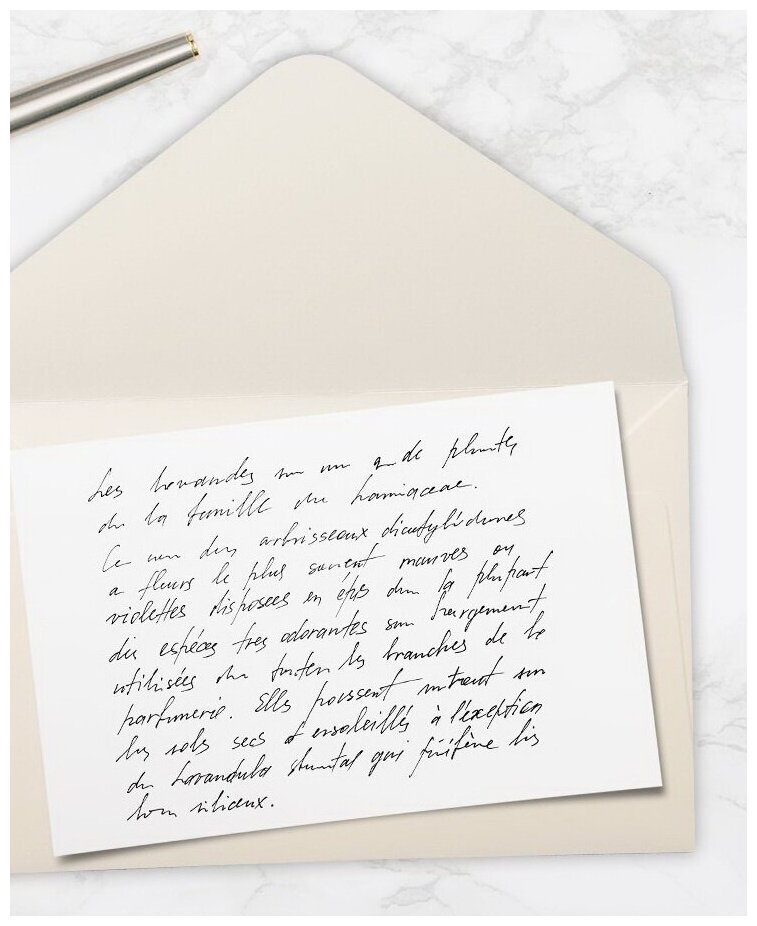 Les lavandes un de plantes
de la famille des Lamiaceae.
Ce arbrisseaux dicotylédones
a fleurs le plus souvent mauves ou
violettes disposees en épis la plupart
des espèces tres odorantes sont largement
utilisées toutes les branches de la
parfumerie. Elles poussent surtout sur
les sols secs et ensoleillés à l'exception
du Lavandula qui préfère les
siliceux.